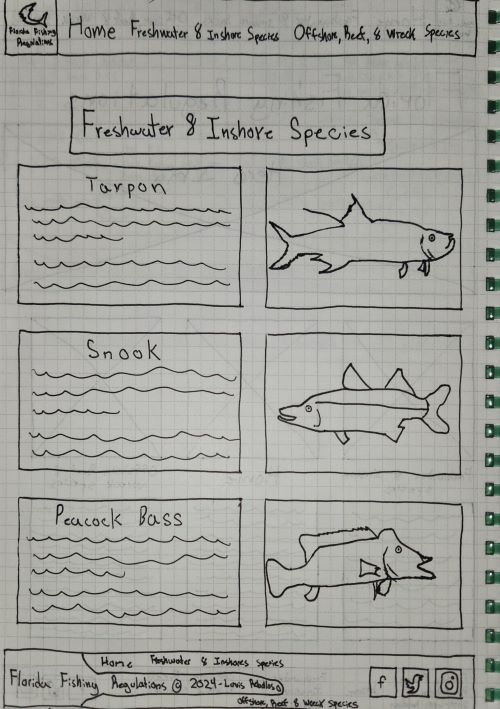 Florida Fishing
Regulations
Home Freshwater & Inshore Species Offshore, Reef, & Wreck Species
Freshwater & Inshore Species
Tarpon
Snook
Peacock Bass
Home Freshwater & Inshores Species
Florida Fishing Regulations © 2024 - Louis
Offshore, Reef & Wreck Species
f